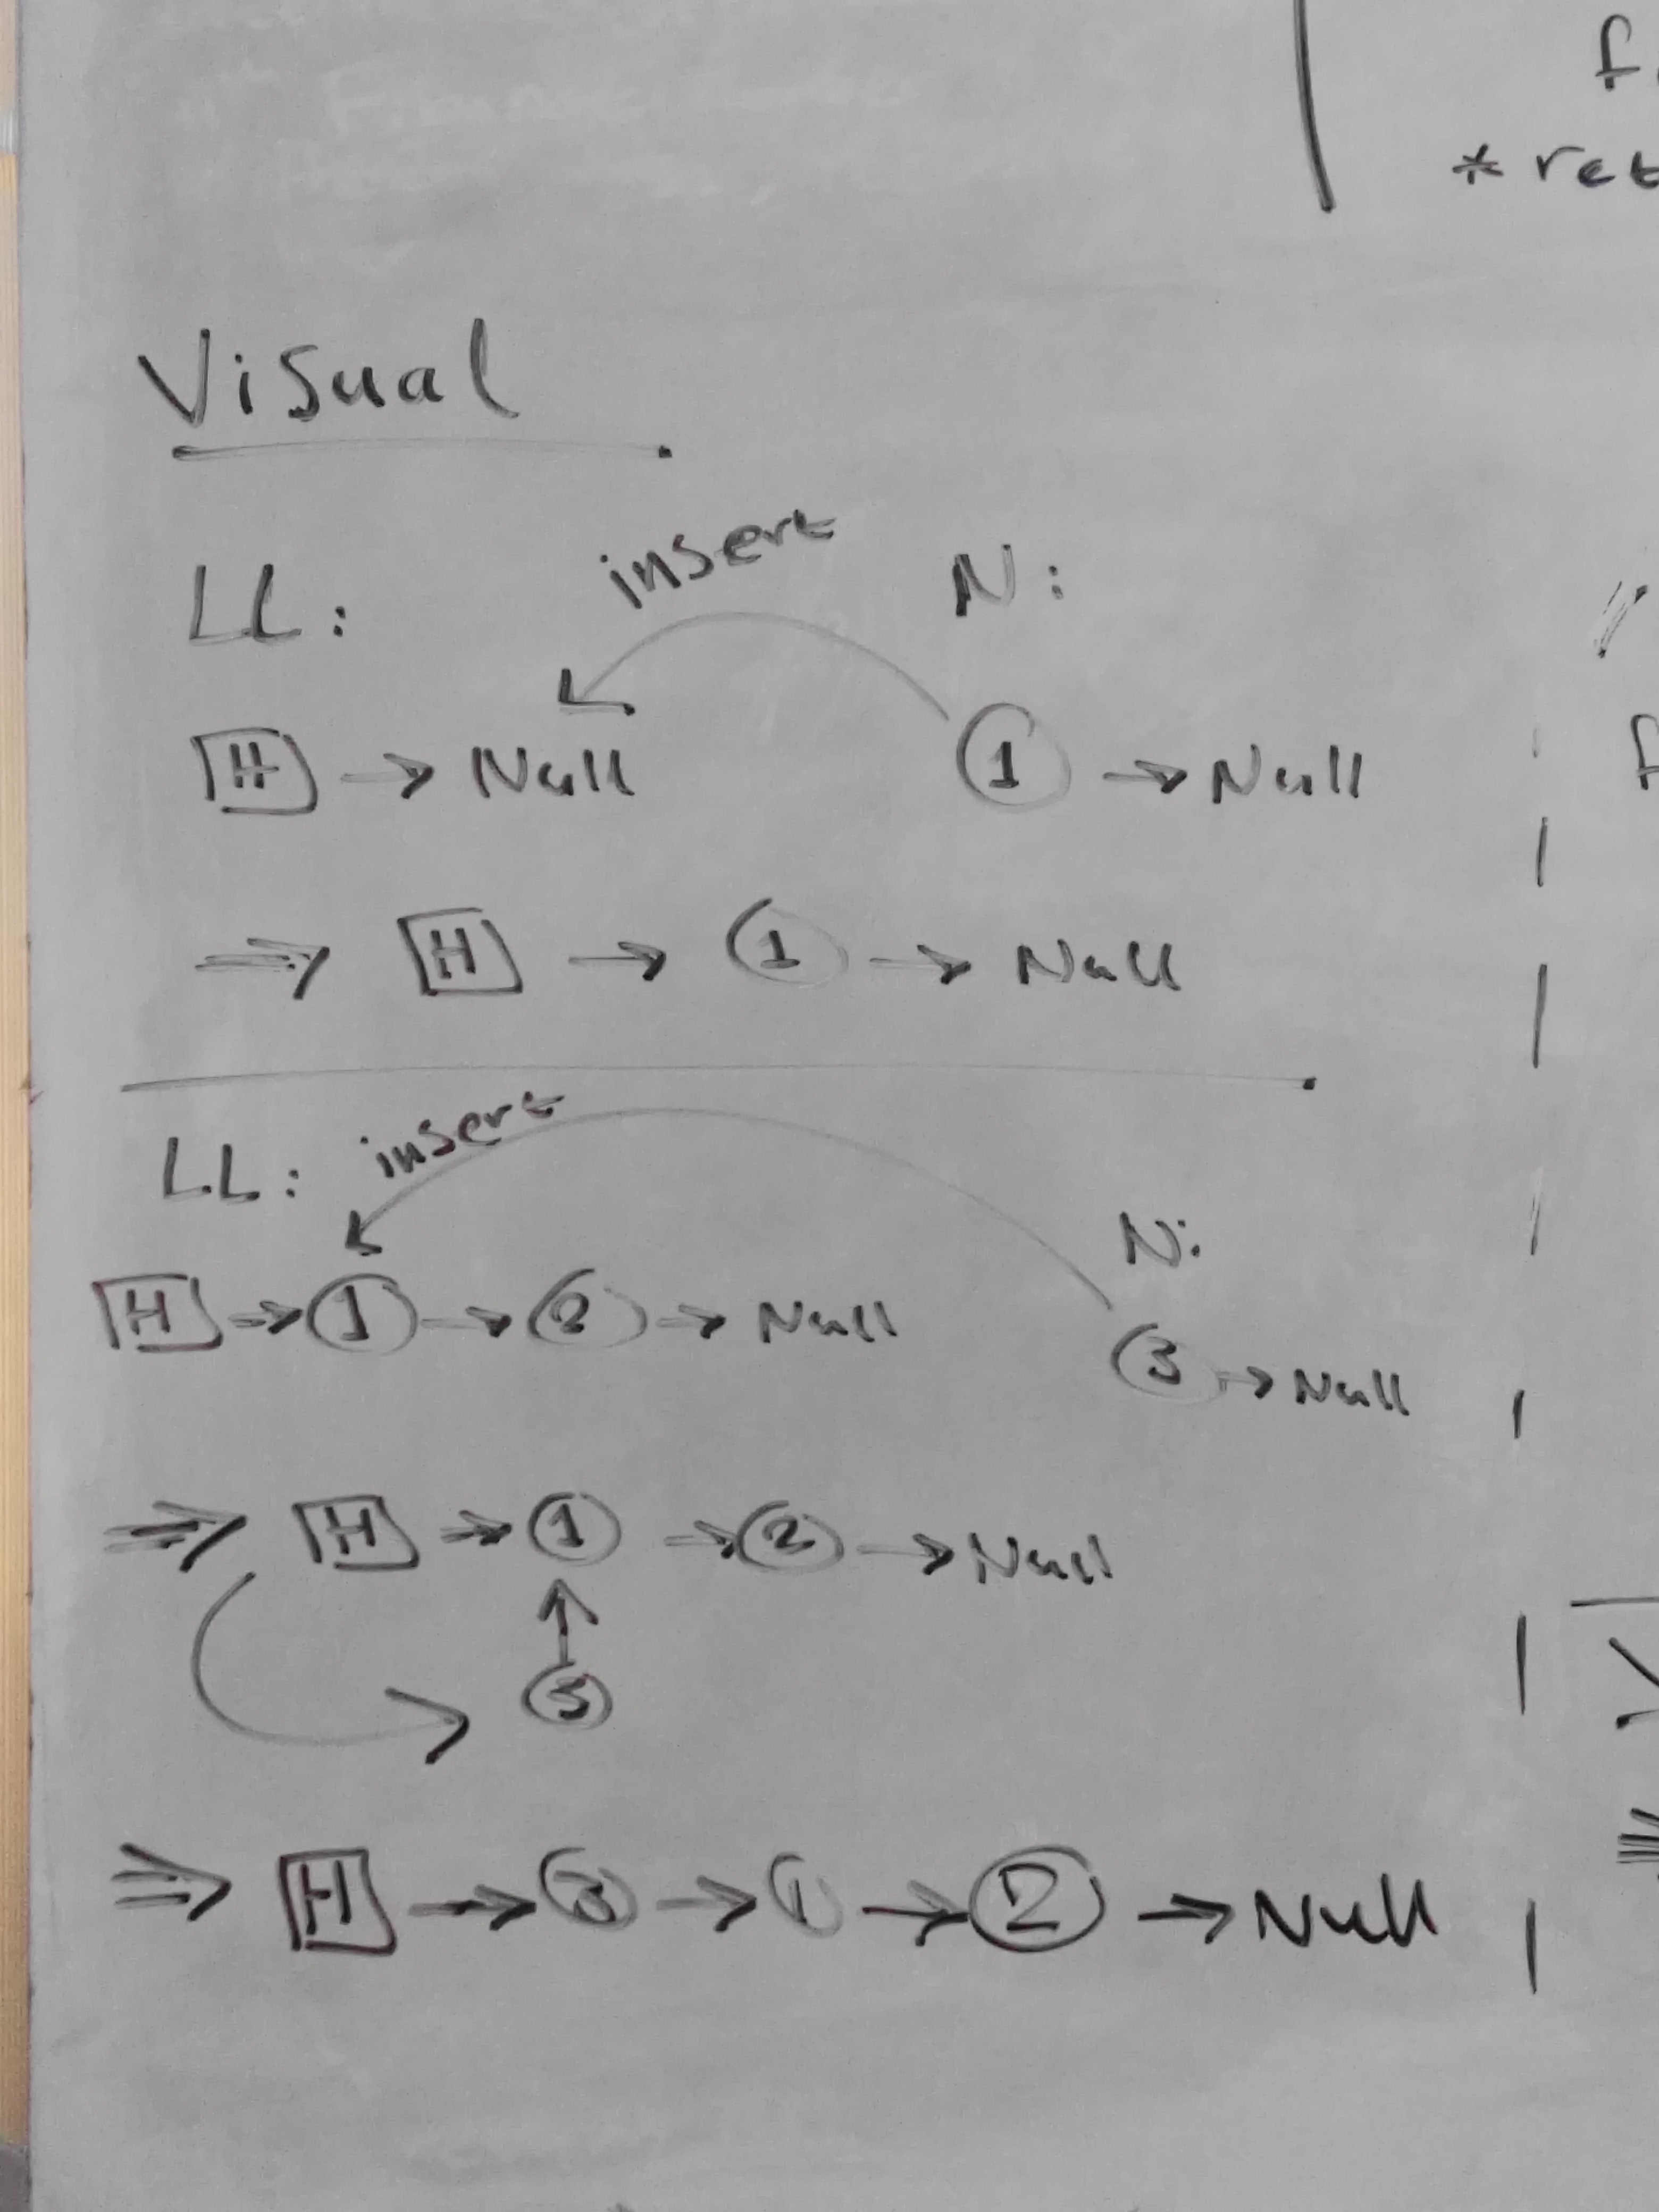 * ret
Visual
LL: insert N:
H → Null 1 → Null
⇒ H → 1 → Null
LL: insert
N:
H → 1 → 2 → Null
3 → Null
⇒ H → 1 → 2 → Null
↑
3
⇒ H → 3 → 1 → 2 → Null